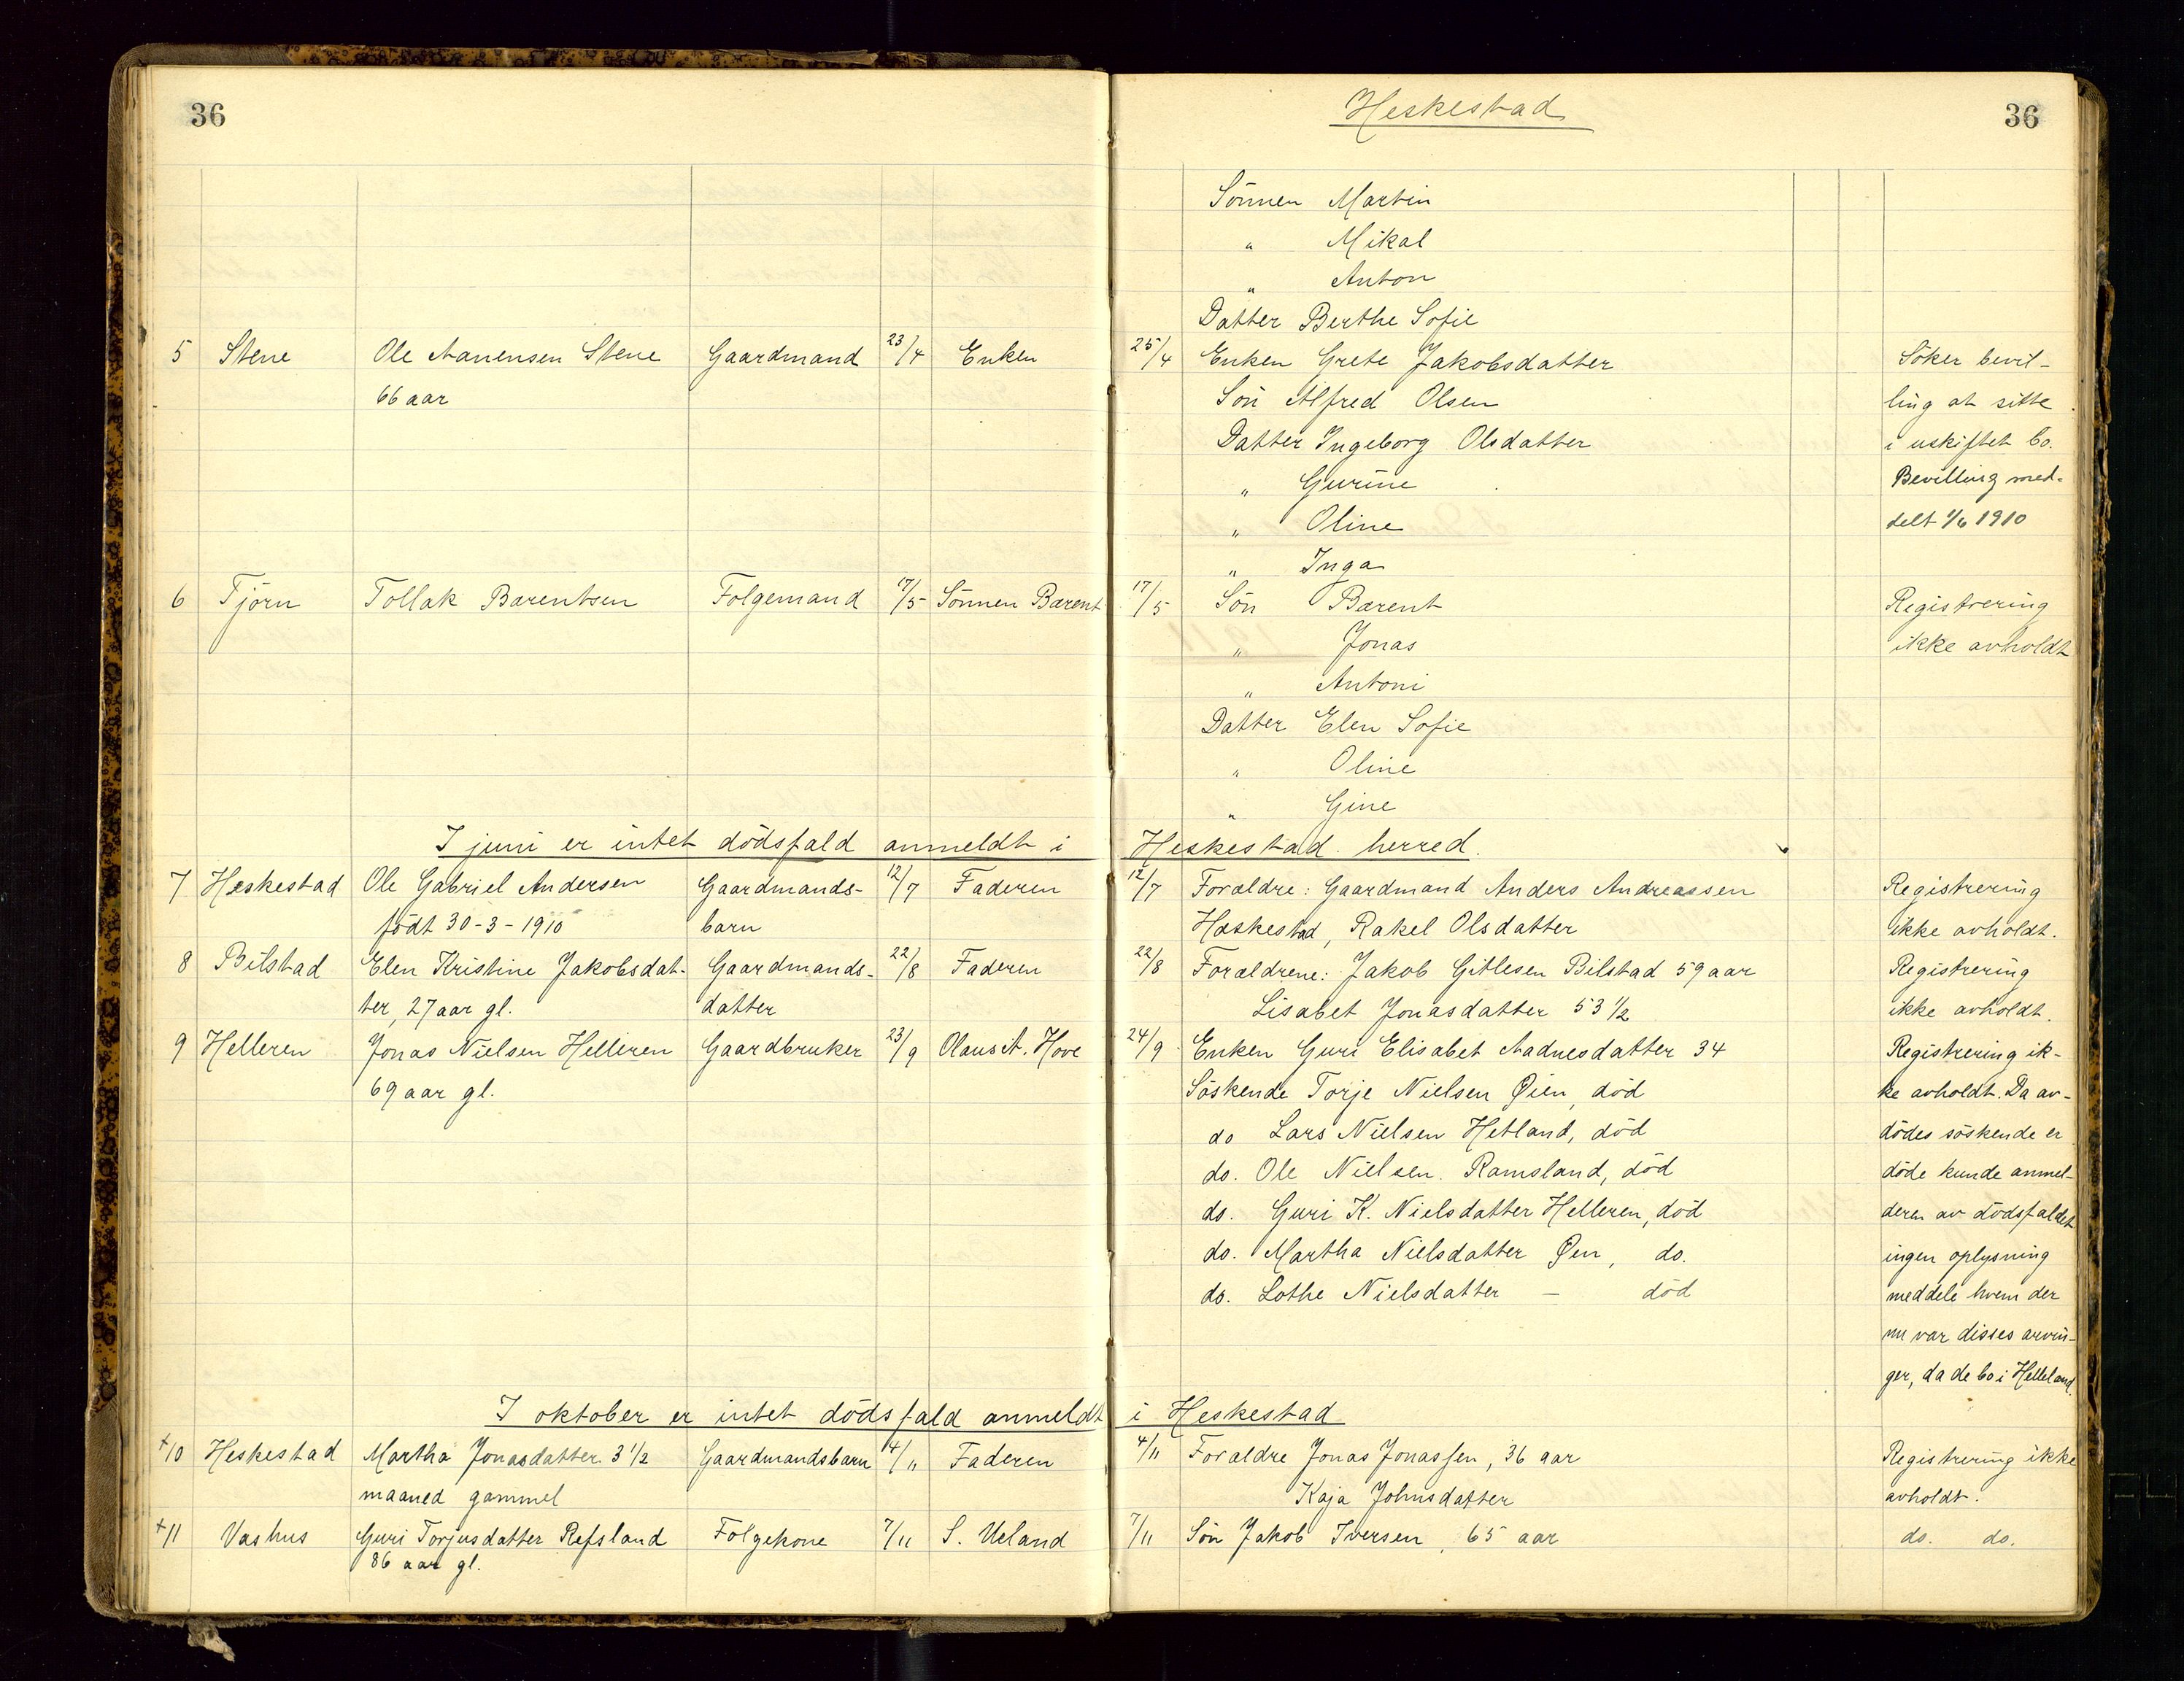 36
Heskestad
36
Sönnen Martin
" Mikal
" Anton
Datter Berthe Sofie
5 Stene Ole Aanensen Stene Gaardmand 23/4 Enken 25/4 Enken Grete Jakobsdatter Söker bevil-
66 aar Sön Alfred Olsen ling at sitte
Datter Ingeborg Olsdatter i uskiftet bo.
" Gurine Bevilling med-
" Oline delt 1/6 1910
" Inga
6 Tjörn Tollak Barentsen Folgemand 17/5 Sönnen Barent 17/5 Sön Barent Registrering
" Jonas ikke avholdt
" Antoni
Datter Elen Sofie
" Oline
" Gine
I juni er intet dödsfald anmeldt i Heskestad herred.
7 Heskestad Ole Gabriel Andersen Gaardmands- 12/7 Faderen 12/7 Forældre: Gaardmand Anders Andreassen Registrering
födt 30-3-1910 barn Heskestad, Rakel Olsdatter ikke avholdt.
8 Bilstad Elen Kristine Jakobsdat- Gaardmands- 22/8 Faderen 22/8 Forældrene: Jakob Gitlesen Bilstad 59 aar Registrering
ter, 27 aar gl. datter Lisabet Jonasdatter 53 1/2 ikke avholdt.
9 Helleren Jonas Nielsen Helleren Gaardbruker 23/9 Olaus A. Hove 24/9 Enken Guri Elisabet Aadnesdatter 34 Registrering ik-
69 aar gl. Söskende Torje Nielsen Øien, död ke avholdt. Da av-
do Lars Nielsen Hetland, död dödes söskende er
do. Ole Nielsen Ramsland, död döde kunde anmel-
do. Guri K. Nielsdatter Helleren, död deren av dödsfaldet
do. Martha Nielsdatter Øen, do. ingen oplysning
do. Lothe Nielsdatter — död meddele hvem der
nu var disses arvin-
ger, da de bo i Helleland.
I oktober er intet dödsfald anmeldt i Heskestad
+10 Heskestad Martha Jonasdatter 3 1/2 Gaardmandsbarn 4/11 Faderen 4/11 Forældre Jonas Jonassen, 36 aar Registrering ikke
maaned gammel Kaja Johnsdatter avholdt.
+11 Vashus Guri Torjusdatter Refsland Folgekone 7/11 S. Ueland 7/11 Sön Jakob Iversen, 65 aar do. do.
86 aar gl.